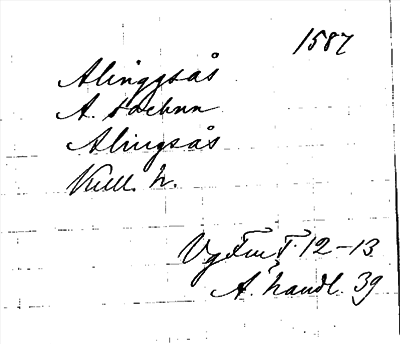 1587
Alinggsås
A. sochnn
Alingsås
Kull. h.
Vg Fmt 12-13
A. handl. 39